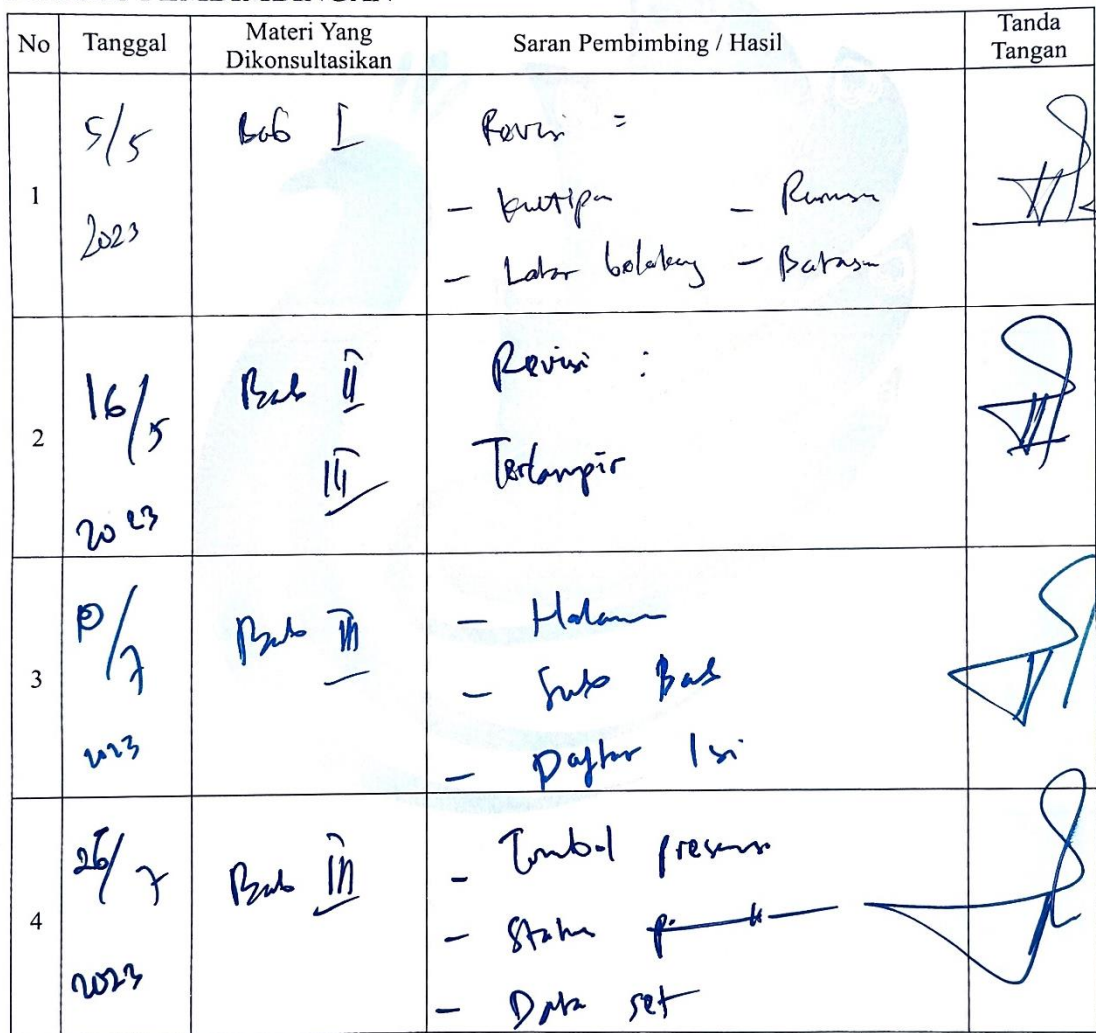 No Tanggal Materi Yang Dikonsultasikan Saran Pembimbing / Hasil Tanda Tangan
1 5/5 2023 Bab I Revisi :
- Kutipan - Rumusan
- Latar belakang - Batasan
2 16/5 2023 Bab II III Revisi :
Terlampir
3 /7 2023 Bab III - Halaman
- Sub Bab
- Daftar Isi
4 26/7 2023 Bab III - Tombol presensi
- Status
- Data set